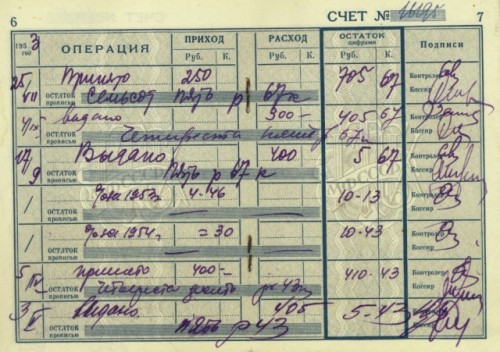 6 СЧЕТ № 7
195 3 ОПЕРАЦИЯ ПРИХОД РАСХОД ОСТАТОК цифрами Подписи
Руб. К. Руб. К. Руб. К.
25 Принято 250 705 67 Контролер
VII ОСТАТОК прописью Семьсот пять р 67 к Кассир
выдано 300- 405 67 Контролер
ОСТАТОК прописью Четыреста пять р 67к Кассир
Выдано 400 5 67 Контролер
9 ОСТАТОК прописью Пять р 67 к Кассир
1 1953г. 4-46 10-13 Контролер
I ОСТАТОК прописью Кассир
1 1954г. =30 10-43 Контролер
I ОСТАТОК прописью Кассир
5 принято 400- 410-43 Контролер
ОСТАТОК прописью Четыреста десять р 43к Кассир
3 Выдано 405 5-43
V ОСТАТОК прописью Пять р 43